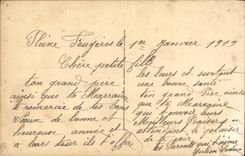 Pleine Fougères le 1er Janvier 1919
Chère petite fille
ton grand père
ainsi que ta Marraine
te remercie de tes bons
Vœux de bonne et
heureuse année et
a leur tour ils t'offre
les leurs et surtout
une bonne santé
ton grand Père ainsi
que ta Marraine
t'envoie leurs
Meilleurs Baisers
attendant le plaisir
de
les Parents qui t'aime